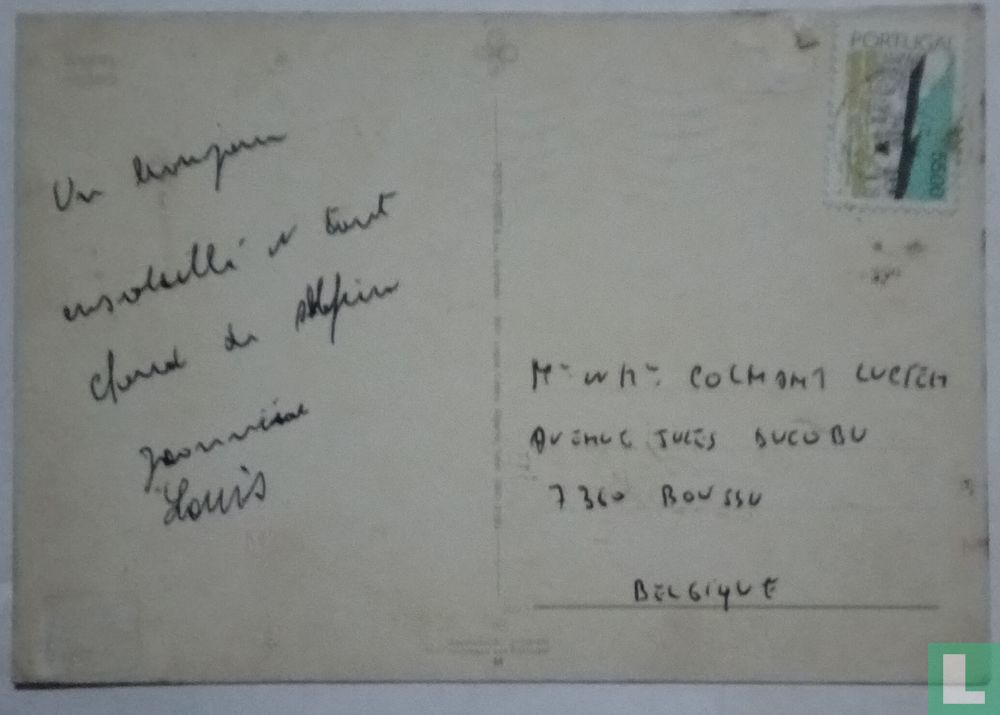 Un bonjour
ensoleillé et tout
chaud de
Jeannine
Louis
PORTUGAL
5500
Mr et Mme COLMANT LUCIEN
AVENUE JULES DUCOBU
7360 BOUSSU
BELGIQUE
L